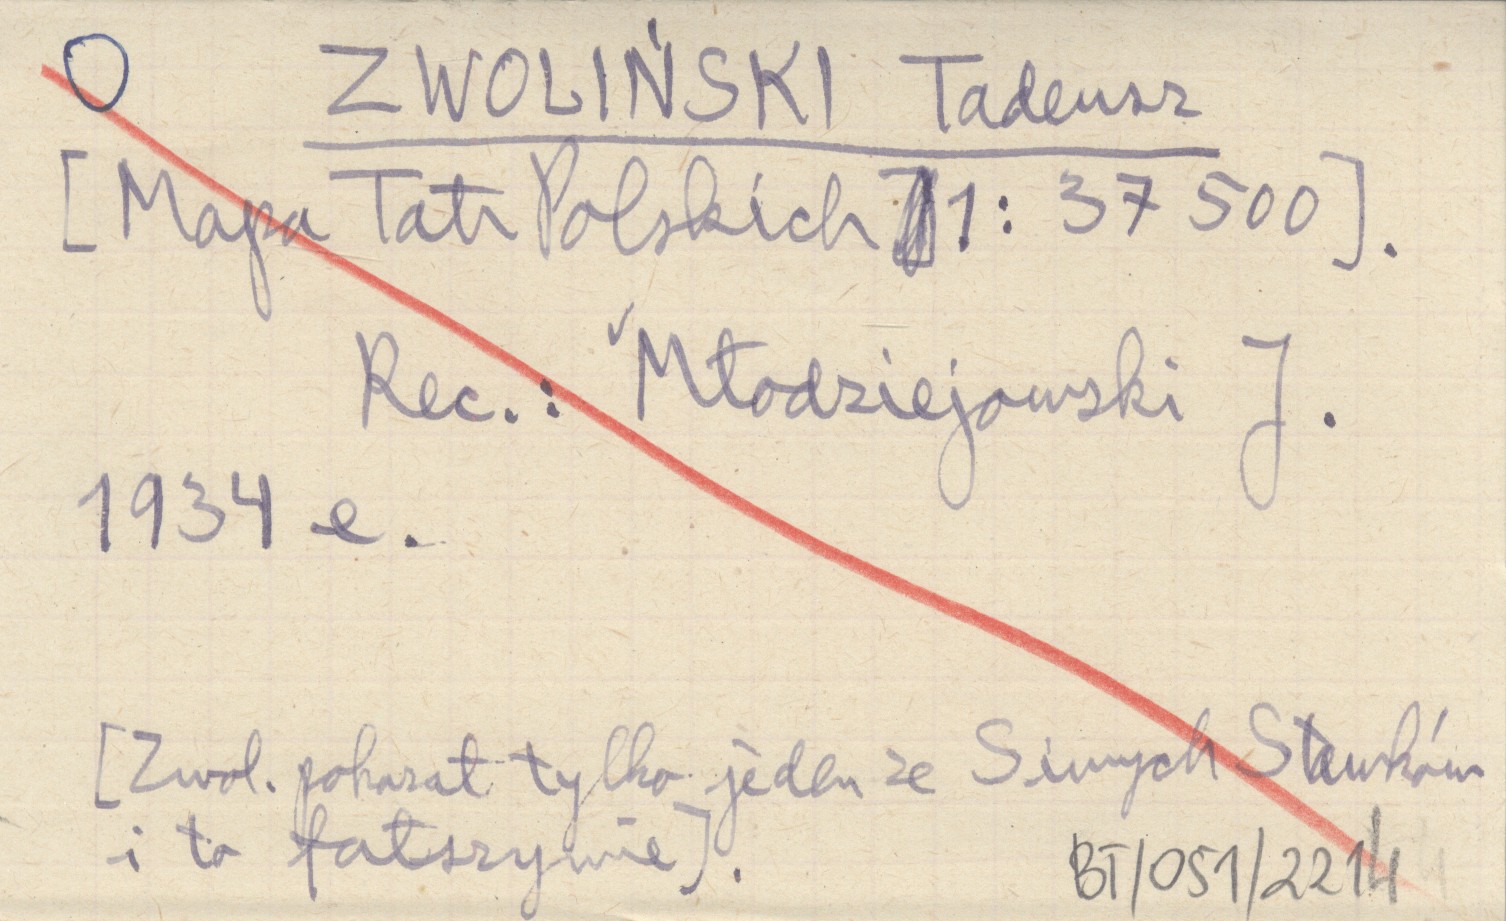 ZWOLIŃSKI Tadeusz
[Mapa Tatr Polskich 1: 37 500].
Rec.: Młodziejowski J.
1934 e.
[Zwol. pokazał tylko jeden ze Sinych Stawków
i to fałszywie].
BT/051/2214